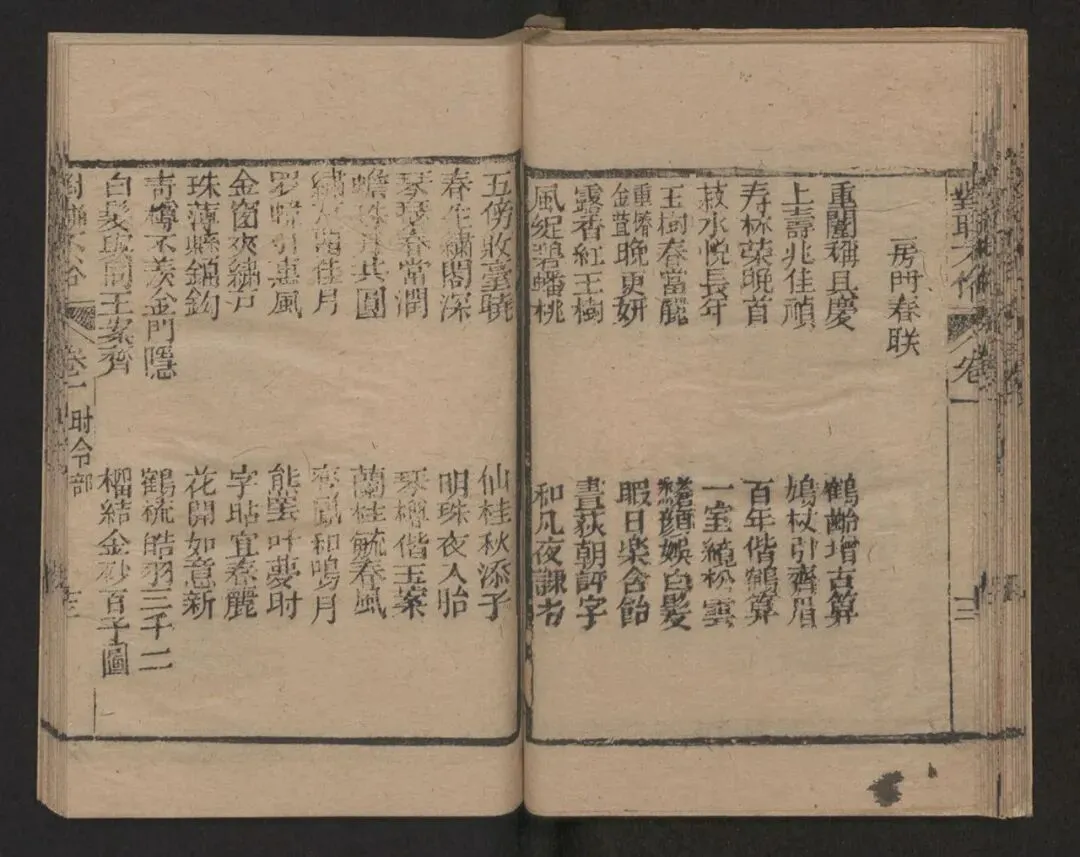 對聯不俗 卷一 十三
房門春联
重闈稱具慶 鶴齡增古算
上壽兆佳頑 鳩杖引齊眉
寿林荣晚首 百年偕鶴算
菽水悦長年 一室繞松雲
玉樹春當麗 蒼顔娛白髮
重椿晚更妍 暇日樂含飴
金萱
靈香紅玉樹 晝荻朝評字
碧蟠桃 和凡夜課
五傍妝臺曉 仙桂秋添子
春生繡閣深 明珠夜入胎
琴瑟春當潤 琹樽偕玉案
蟾珠月共圓 蘭桂毓春風
佳月 和鳴月
引惠風 能羆叶夢时
金窗夾繡戸 字贴宜春麗
珠薄縣銀鈎 花開如意新
青樽不羨金門隱 鶴梳皓羽三千二
白髮同玉案齊 榴結金砂百子圖
卷一 时令部 十三